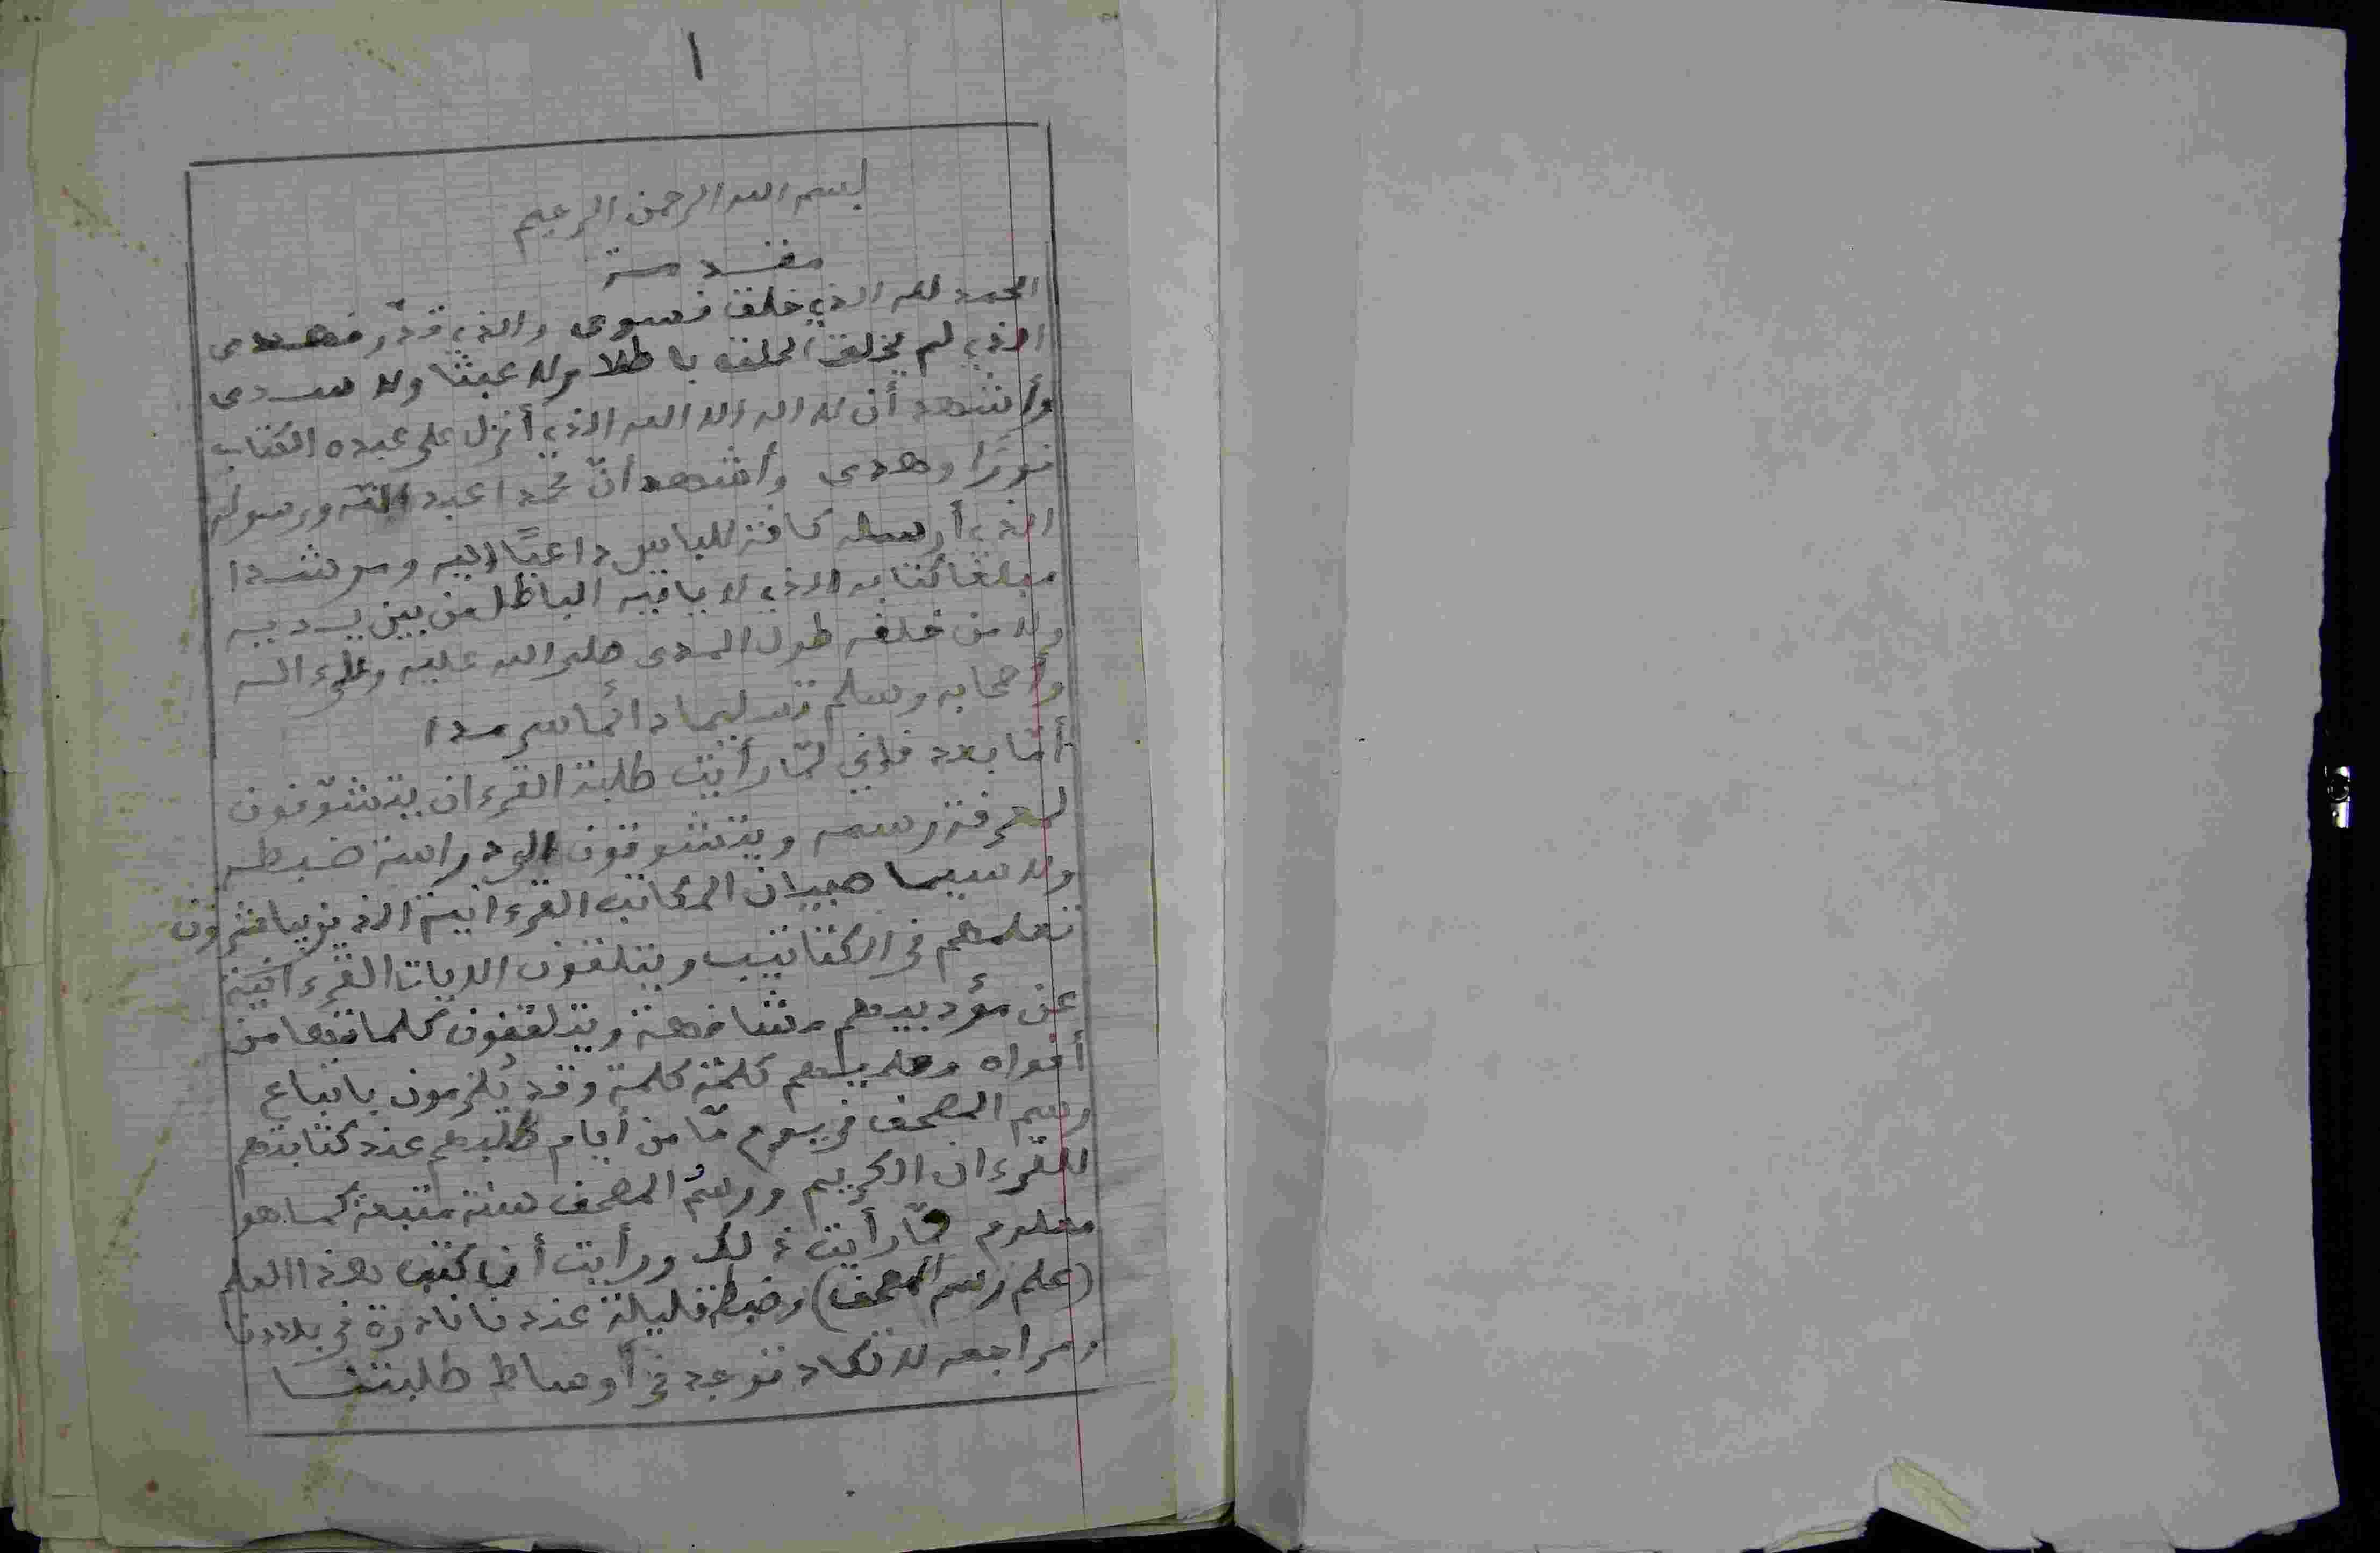 ١
بسم الله الرحمن الرحيم
مقدمة
الحمد لله الذي خلق فسوى والذي قدّر فهدى
الذي لم يخلق الخلق باطلا ولا عبثا ولا سدى
وأشهد أن لا اله الا الله الذي أنزل على عبده الكتاب
نورًا وهدى وأشهد أنّ محمدا عبد الله ورسوله
الذي أرسله كافة للناس داعيًا اليه ومرشدا
مبلغا كتابه الذي لا ياتيه الباطل من بين يديه
ولا من خلفه طول المدى صلى الله عليه وعلىءاله
وأصحابه وسلم تسليما دائما سرمدا
أما بعد فإني لمّا رأيت طلبة القرءان يتشوّفون
لمعرفة رسمه ويتشوقون الى دراسة ضبطه
ولا سيما صبيان المكاتب القرءانية الذين يباشرون
تعلمهم في الكتاتيب ويتلقون الايات القرءانية
عن مؤدبيهم مشافهة ويتلقفون كلماتها من
أفواه معلميهم كلمة كلمة وقد يُلزمون باتباع
رسم المصحف في يوم مّا من أيام طلبهم عند كتابتهم
للقرءان الكريم ورسمُ المصحف سنة متبعة كما هو
معلوم لمّا رأيت ذلك ورأيت أن كتب هذا العلم
(علم رسم المصحف) وضبطه قليلة عندنا نادرة في بلادنا
ومراجعه لا تكاد توجد في أوساط طلبتنا